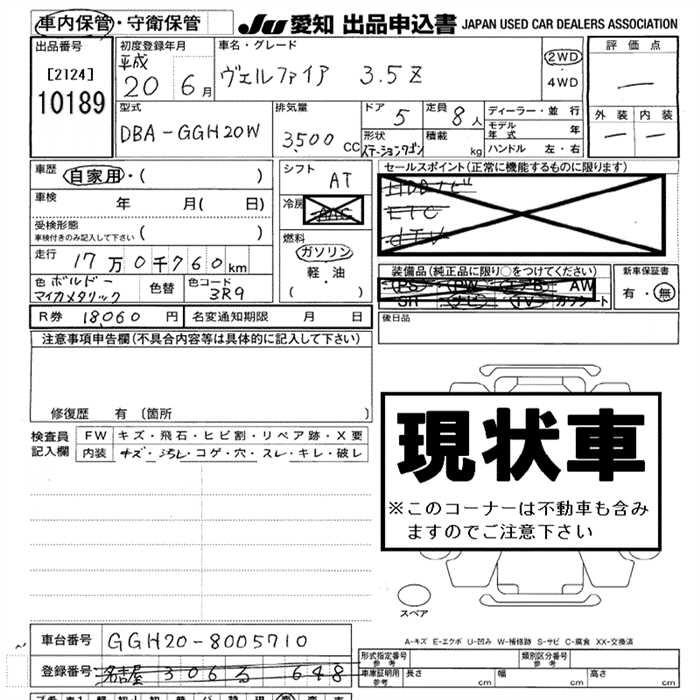 車内保管・守衛保管
JU 愛知 出品申込書 JAPAN USED CAR DEALERS ASSOCIATION
出品番号
[2124]
10189
初度登録年月
平成
20 6月
車名・グレード
ヴェルファイア 3.5Z
2WD
・
4WD
評価点
—
外装 内装
— —
型式
DBA-GGH20W
排気量
3,500 CC
ドア
5
定員
8人
形状
ステーションワゴン
積載
kg
ディーラー・並行
モデル年式 年
ハンドル 左・右
車歴
自家用・( )
車検 年 月( 日)
受検形態
車検付きのみ記入して下さい ( )
走行 17万0千760km
色 ボルドーマイカメタリック
色替
色コード
3R9
シフト
AT
冷房
AAC
燃料
ガソリン
・
軽・油
( )
セールスポイント(正常に機能するものに限ります)
HDDナビ
ETC
dTV
装備品(純正品に限り○をつけてください)
PS PW エアB AW
SR ナビ TV カワシート
新車保証書
有・無
R券 18,060 円
名変通知期限 月 日
後日品
注意事項申告欄(不具合内容等は具体的に記入して下さい)
修復歴 有 (箇所 )
検査員記入欄
FW キズ・飛石・ヒビ割・リペア跡・X要
内装 キズ・汚れ・コゲ・穴・スレ・キレ・破レ
現状車
※このコーナーは不動車も含み
ますのでご注意下さい
スペア
A-キズ E-エクボ U-凹み W-補修跡 S-サビ C-腐食 XX-交換済
車台番号 GGH20-8005710
登録番号 名古屋 306 る 648
形式指定番号
参考
類別区分番号
参考
車庫証明用
参考
長さ 幅 高さ